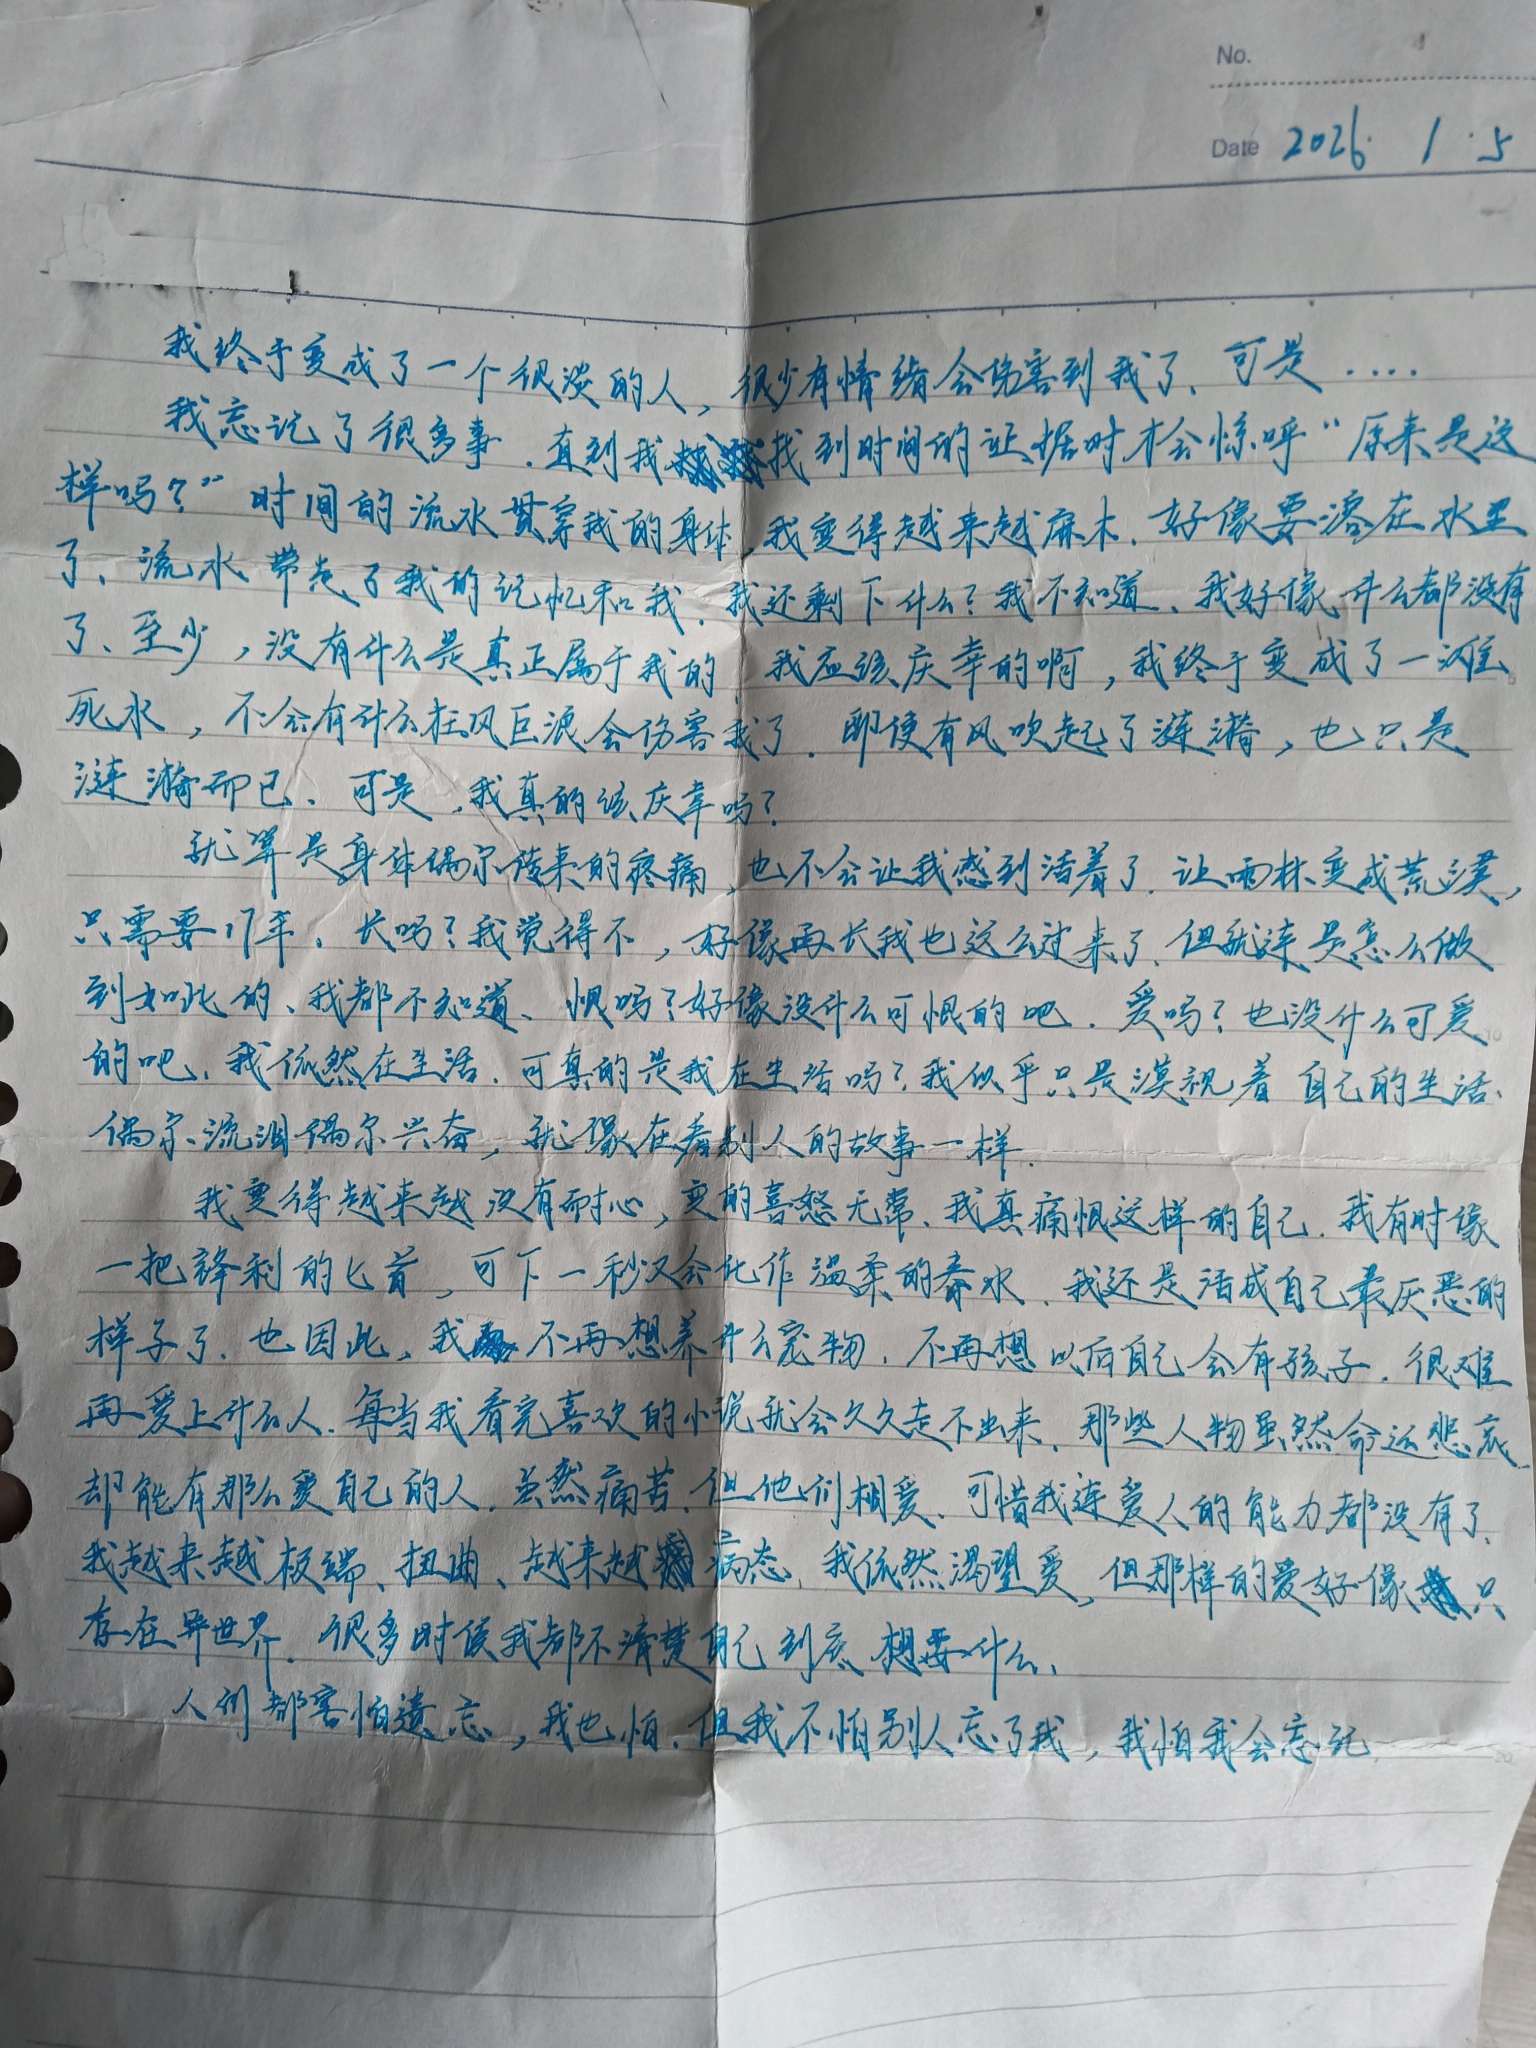 No.
Date 2026. 1. 5
我终于变成了一个很淡的人，很少有情绪会伤害到我了、可是.....
我忘记了很多事.直到我找到时间的证据时才会惊呼“原来是这
样吗？”时间的流水贯穿我的身体,我变得越来越麻木.好像要溶在水里
了、流水带走了我的记忆和我.我还剩下什么？我不知道、我好像什么都没有
了、至少，没有什么是真正属于我的.我应该庆幸的啊，我终于变成了一滩
死水，不会有什么狂风巨浪会伤害我了.即使有风吹起了涟漪，也只是
涟漪而已、可是，我真的该庆幸吗？
就算是身体偶尔传来的疼痛，也不会让我感到活着了.让雨林变成荒漠，
只需要17年.长吗？我觉得不，好像再长我也这么过来了.但就连是怎么做
到如此的、我都不知道、恨吗？好像没什么可恨的吧.爱吗？也没什么可爱
的吧、我依然在生活.可真的是我在生活吗？我似乎只是漠视着自己的生活、
偶尔流泪偶尔兴奋，就像在看别人的故事一样.
我变得越来越没有耐心，变的喜怒无常、我真痛恨这样的自己.我有时像
一把锋利的匕首，可下一秒又会化作温柔的春水.我还是活成自己最厌恶的
样子了.也因此，我不再想养什么宠物.不再想以后自己会有孩子.很难
再爱上什么人.每当我看完喜欢的小说就会久久走不出来.那些人物虽然命运悲哀
却能有那么爱自己的人.虽然痛苦.但他们相爱、可惜我连爱人的能力都没有了.
我越来越极端、扭曲、越来越病态.我依然渴望爱，但那样的爱好像只
存在异世界.很多时候我都不清楚自己到底想要什么、
人们都害怕遗忘，我也怕.但我不怕别人忘了我，我怕我会忘记.